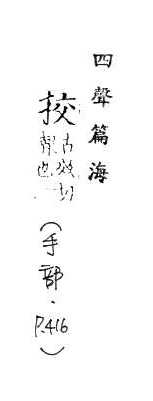 四聲篇海
挍
古效切
報也
(手部.P.416)